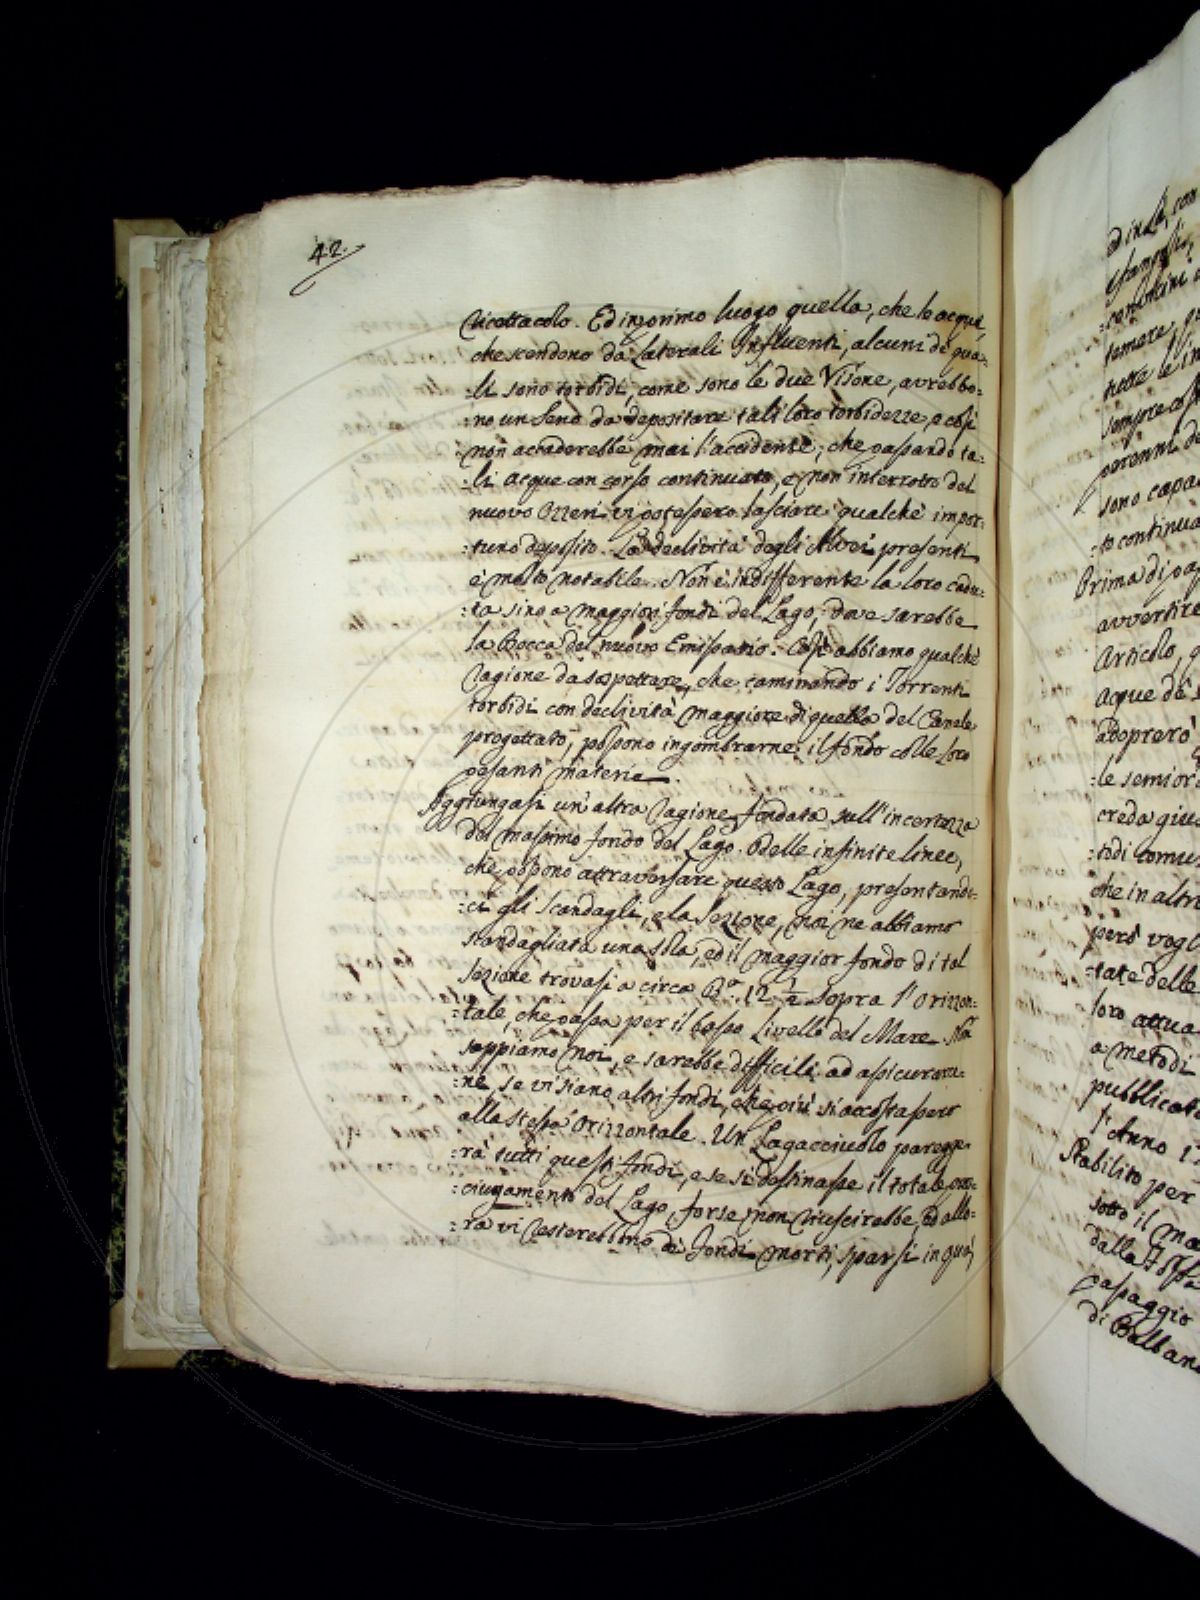 42.
ricettacolo. Ed in primo luogo quella, che le acque,
che scendono da Laterali Influenti, alcuni de' qua-
:li sono torbidi, come sono le due Visone, avrebbo-
:no un seno da depositare tali loro torbidezze, e così
non accaderebbe mai l'accidente, che passando ta-
:li acque con corso continuato, e non interrotto del
nuovo Ozzeri vi potessero lasciare qualche impor-
:tuno deposito. La declività degli Alvei presenti
è molto notabile. Non è indifferente la loro cadu-
:ta sino a maggiori fondi del Lago, dove sarebbe
la Bocca del nuovo Emissario. Così abbiamo qualche
ragione da sospettare, che caminando i Torrenti
torbidi con declività maggiore di quella del Canale
progettato, possono ingombrarne il fondo colle loro
pesanti materie.
Aggiungasi un'altra ragione fondata sull'incertezza
del massimo fondo del Lago. Delle infinite linee,
che possono attraversare questo Lago, presentando-
:ci gli Scandagli, e la Sezione, noi ne abbiamo
scandagliata una sola, ed il maggior fondo di tal
sezione trovasi a circa Ba. 12 1/2 sopra l'Orizzon-
:tale, che passa per il basso Livello del Mare. Nè
sappiamo noi, e sarebbe difficile ad assicurarce-
:ne, se vi siano altri fondi, che più si accostassero
alla stessa Orizzontale. Un Lagacciuolo paregge-
:rà tutti questi fondi, e se si destinasse il totale pro-
:ciugamento del Lago, forse non riuscirebbe, ed allo-
:ra vi resterebbono de' fondi morti, sparsi in quà,
ed in là, con
temere,
tutte le in
sempre
perenni
sono capa
:to continua
Prima di pas
avvertire
Articolo,
acque de'
adoprerò
le semior
creda giu
:todi comu
che in altri
però vogl
:tate delle
loro attua
a metodi
pubblicat
l'Anno 17
Stabilito per
sotto il ma
dalla
passaggio
di Balbano